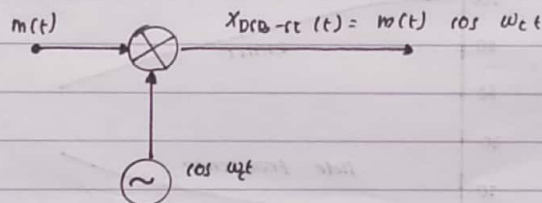 m(t)
X_DSB-SC (t) = m(t) cos ω_c t
cos ω_c t
~